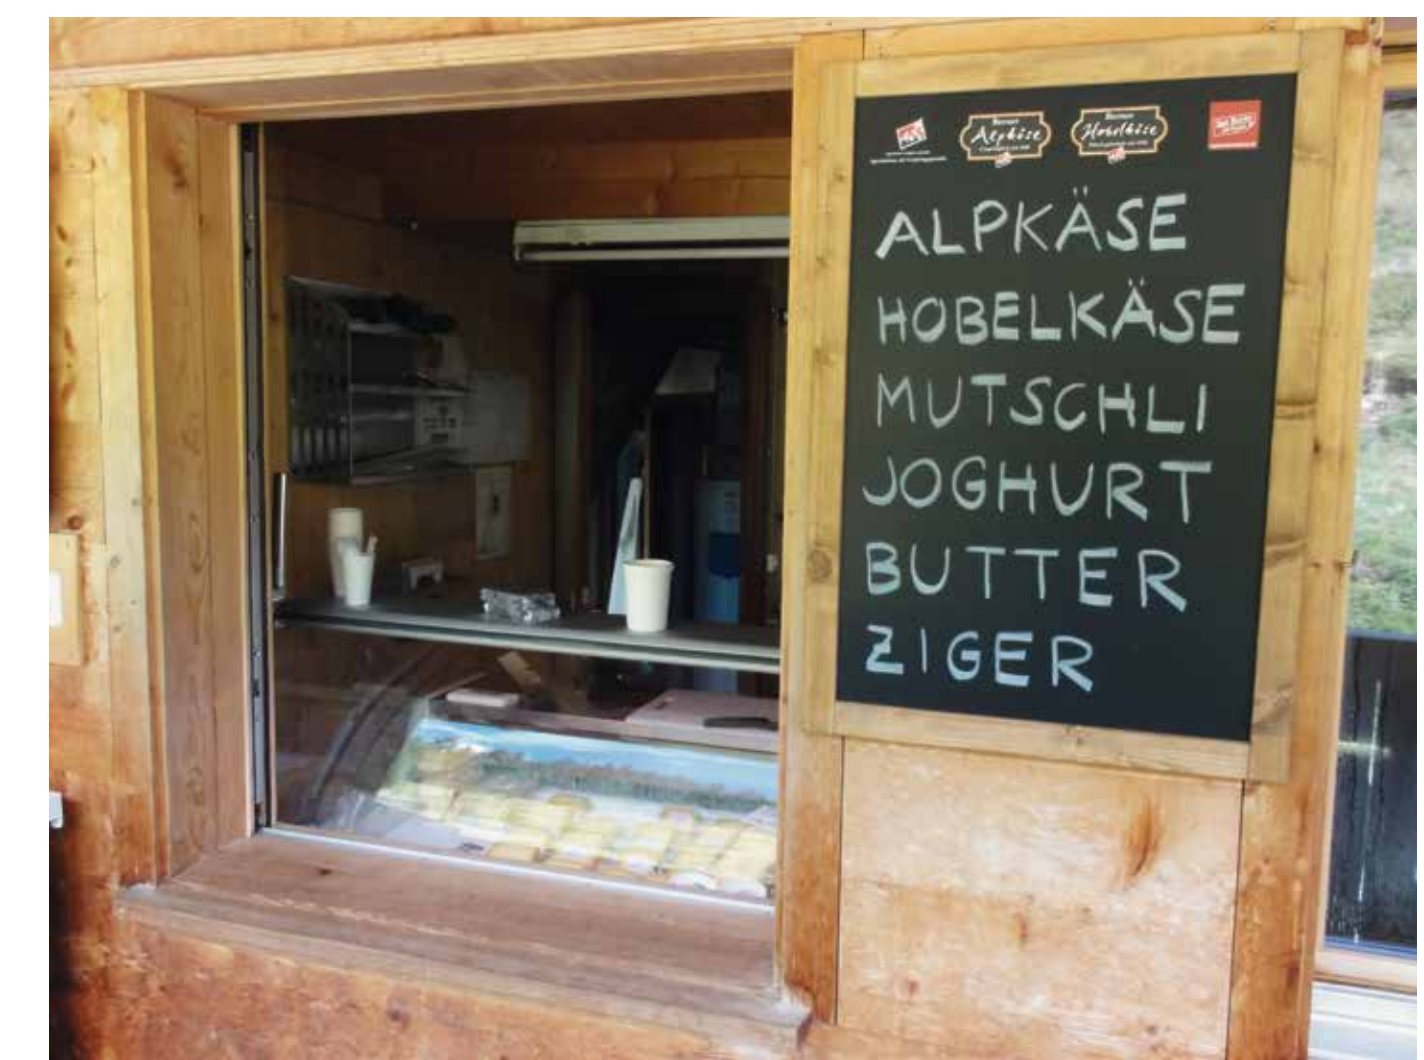 Berner
Alpkäse
Berner
Hobelkäse
ALPKÄSE
HOBELKÄSE
MUTSCHLI
JOGHURT
BUTTER
ZIGER